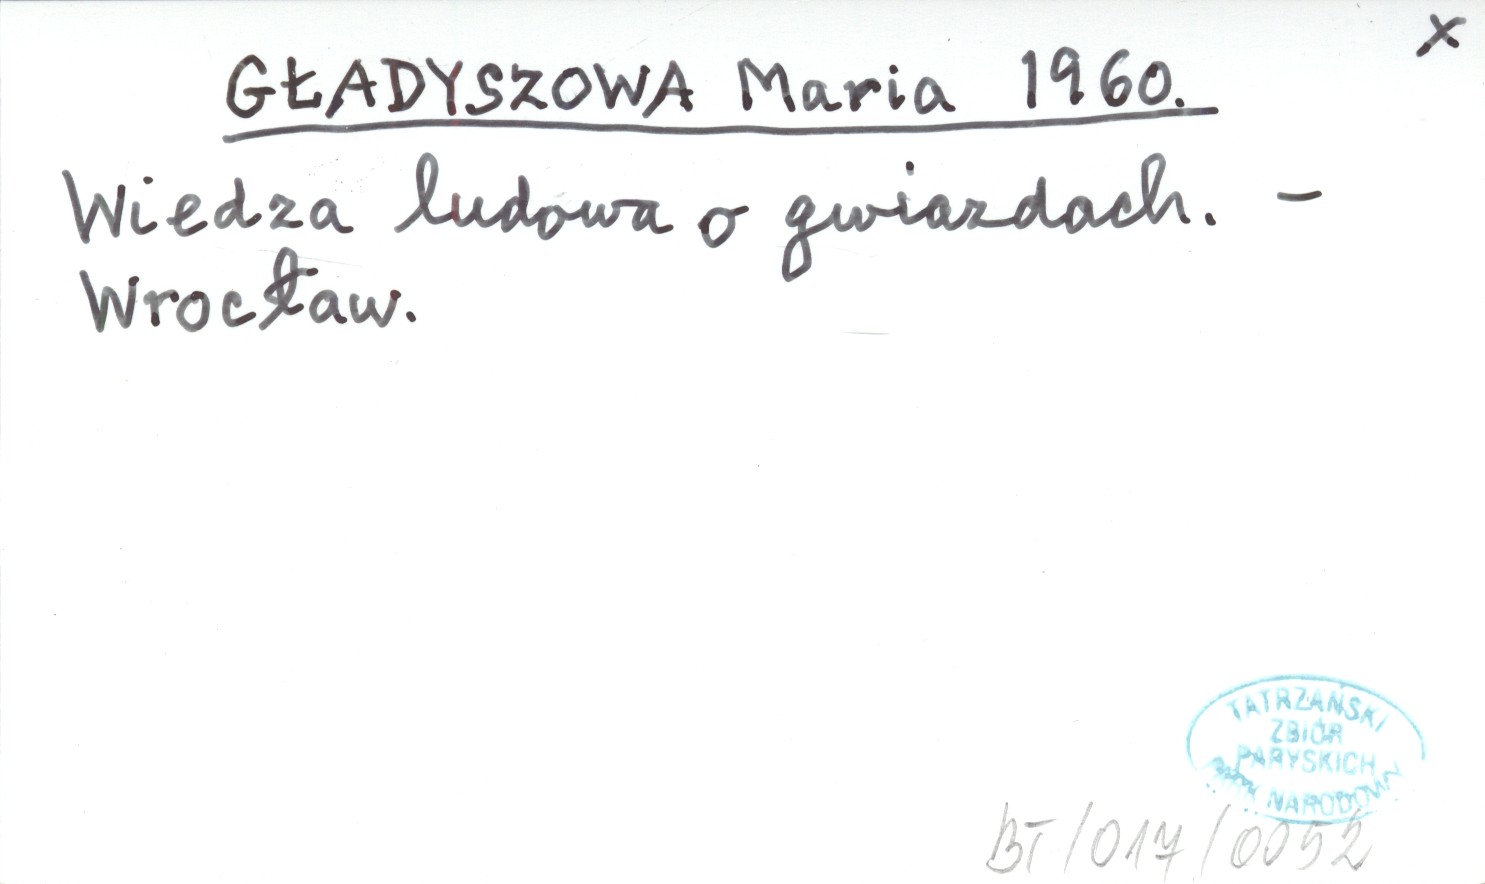 x
GŁADYSZOWA Maria 1960.
Wiedza ludowa o gwiazdach. –
Wrocław.
TATRZAŃSKI
ZBIÓR
PARYSKICH
PARK NARODOWY
BT/017/0052